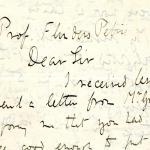 Prof. Flinders Petrie
Dear Sir
I received
a letter from Mr
me that you had
good enough to put